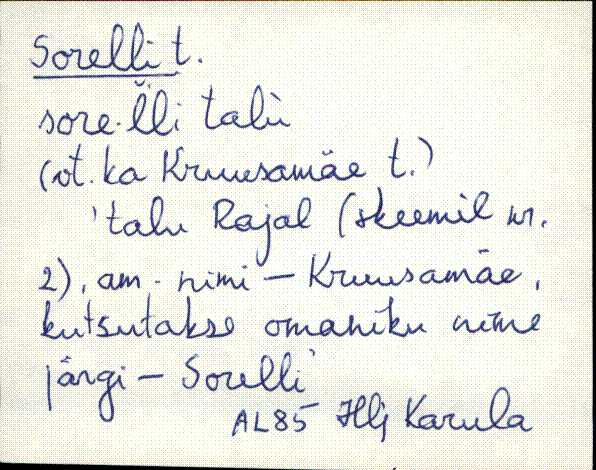 Sorelli t.
sore·l̆l̆i talù
(vt. ka Kruusamäe t.)
'talu Rajal (skeemil nr.
2), am. nimi – Kruusamäe,
kutsutakse omaniku nime
järgi – Sorelli'
AL85 Hlj Karula